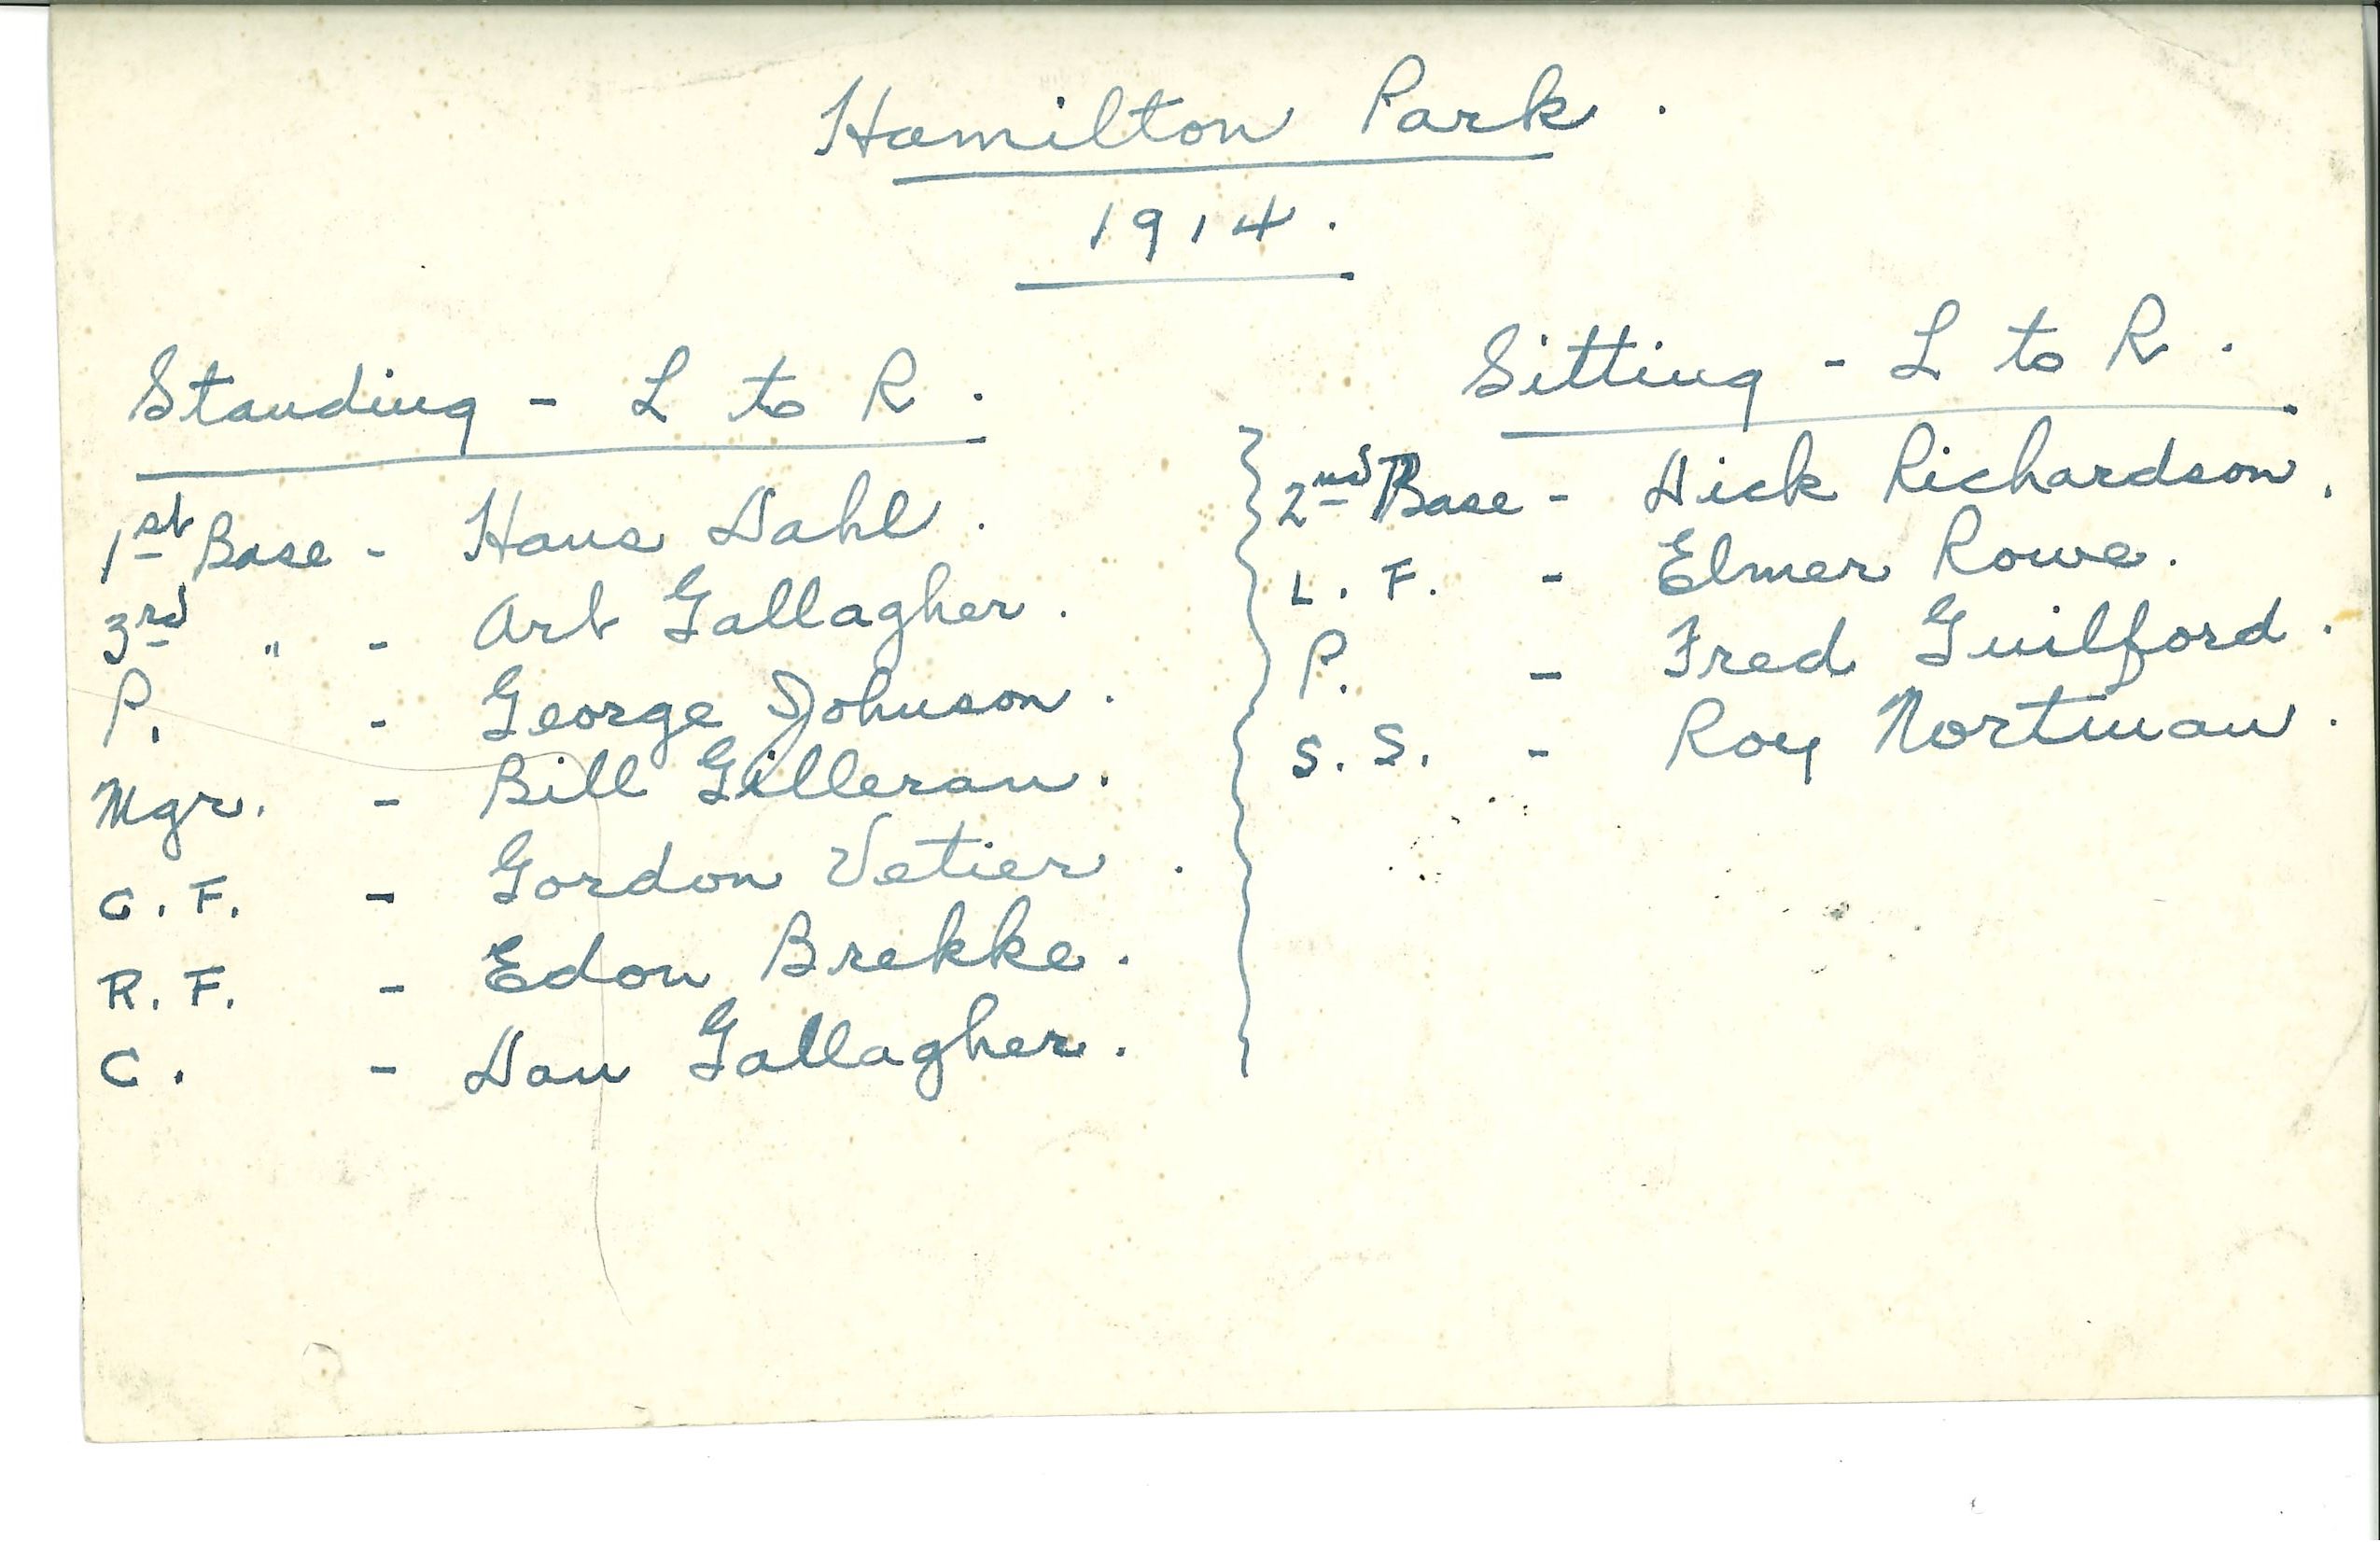 Hamilton Park.
1914.
Standing - L to R.
1st Base - Hans Dahl.
3rd " - Art Gallagher.
P. - George Johnson.
Mgr. - Bill Gilleran.
C. F. - Gordon Vetier.
R. F. - Edon Brekke.
C. - Dan Gallagher.
Sitting - L to R.
2nd Base - Dick Richardson.
L. F. - Elmer Rowe.
P. - Fred Guilford.
S. S. - Roy Nortman.